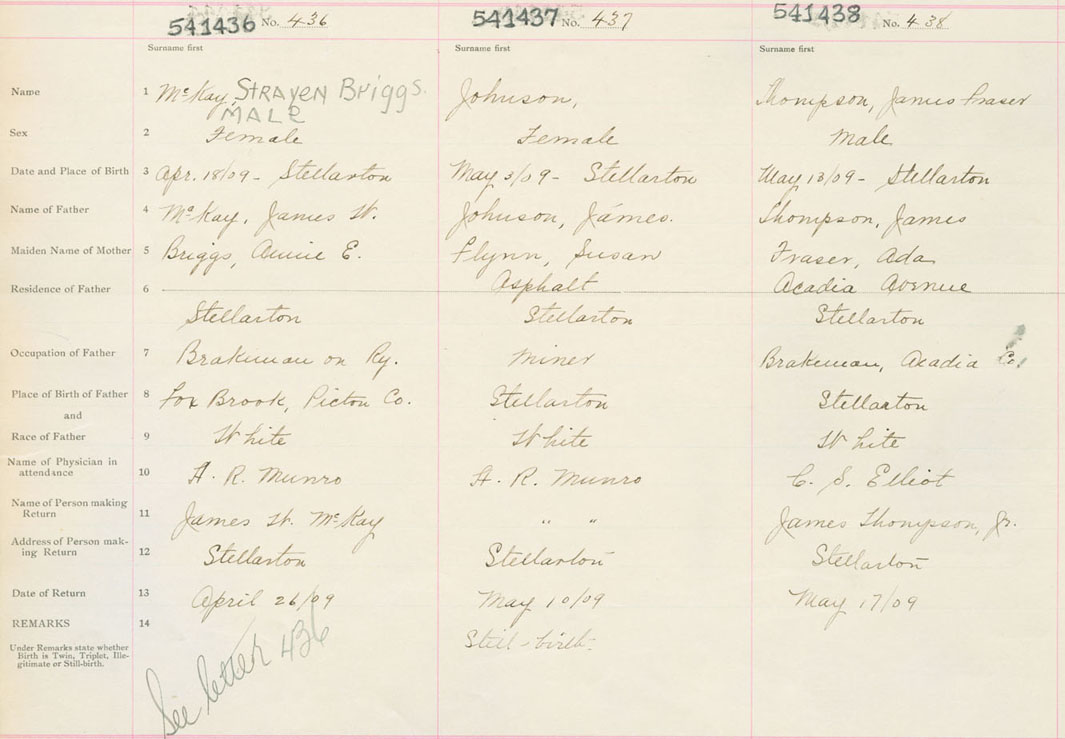 541436 No. 436 541437 No. 437 541438 No. 438
Surname first Surname first Surname first
Name 1 McKay, STRAVEN Briggs. Johnson, Thompson, James Fraser
MALE
Sex 2 Female Female Male
Date and Place of Birth 3 Apr. 18/09 - Stellarton May 3/09 - Stellarton May 13/09 - Stellarton
Name of Father 4 McKay, James W. Johnson, James. Thompson, James
Maiden Name of Mother 5 Briggs, Annie E. Flynn, Susan Fraser, Ada
Residence of Father 6 Asphalt Acadia Avenue
Stellarton Stellarton Stellarton
Occupation of Father 7 Brakeman on Ry. Miner Brakeman, Acadia Co.
Place of Birth of Father 8 Fox Brook, Pictou Co. Stellarton Stellarton
and
Race of Father 9 White White White
Name of Physician in
attendance 10 H. R. Munro H. R. Munro C. S. Elliot
Name of Person making
Return 11 James W. McKay " " James Thompson, Jr.
Address of Person mak-
ing Return 12 Stellarton Stellarton Stellarton
Date of Return 13 April 26/09 May 10/09 May 17/09
REMARKS 14 Still-birth.
Under Remarks state whether
Birth is Twin, Triplet, Ille-
gitimate or Still-birth.
See letter 436